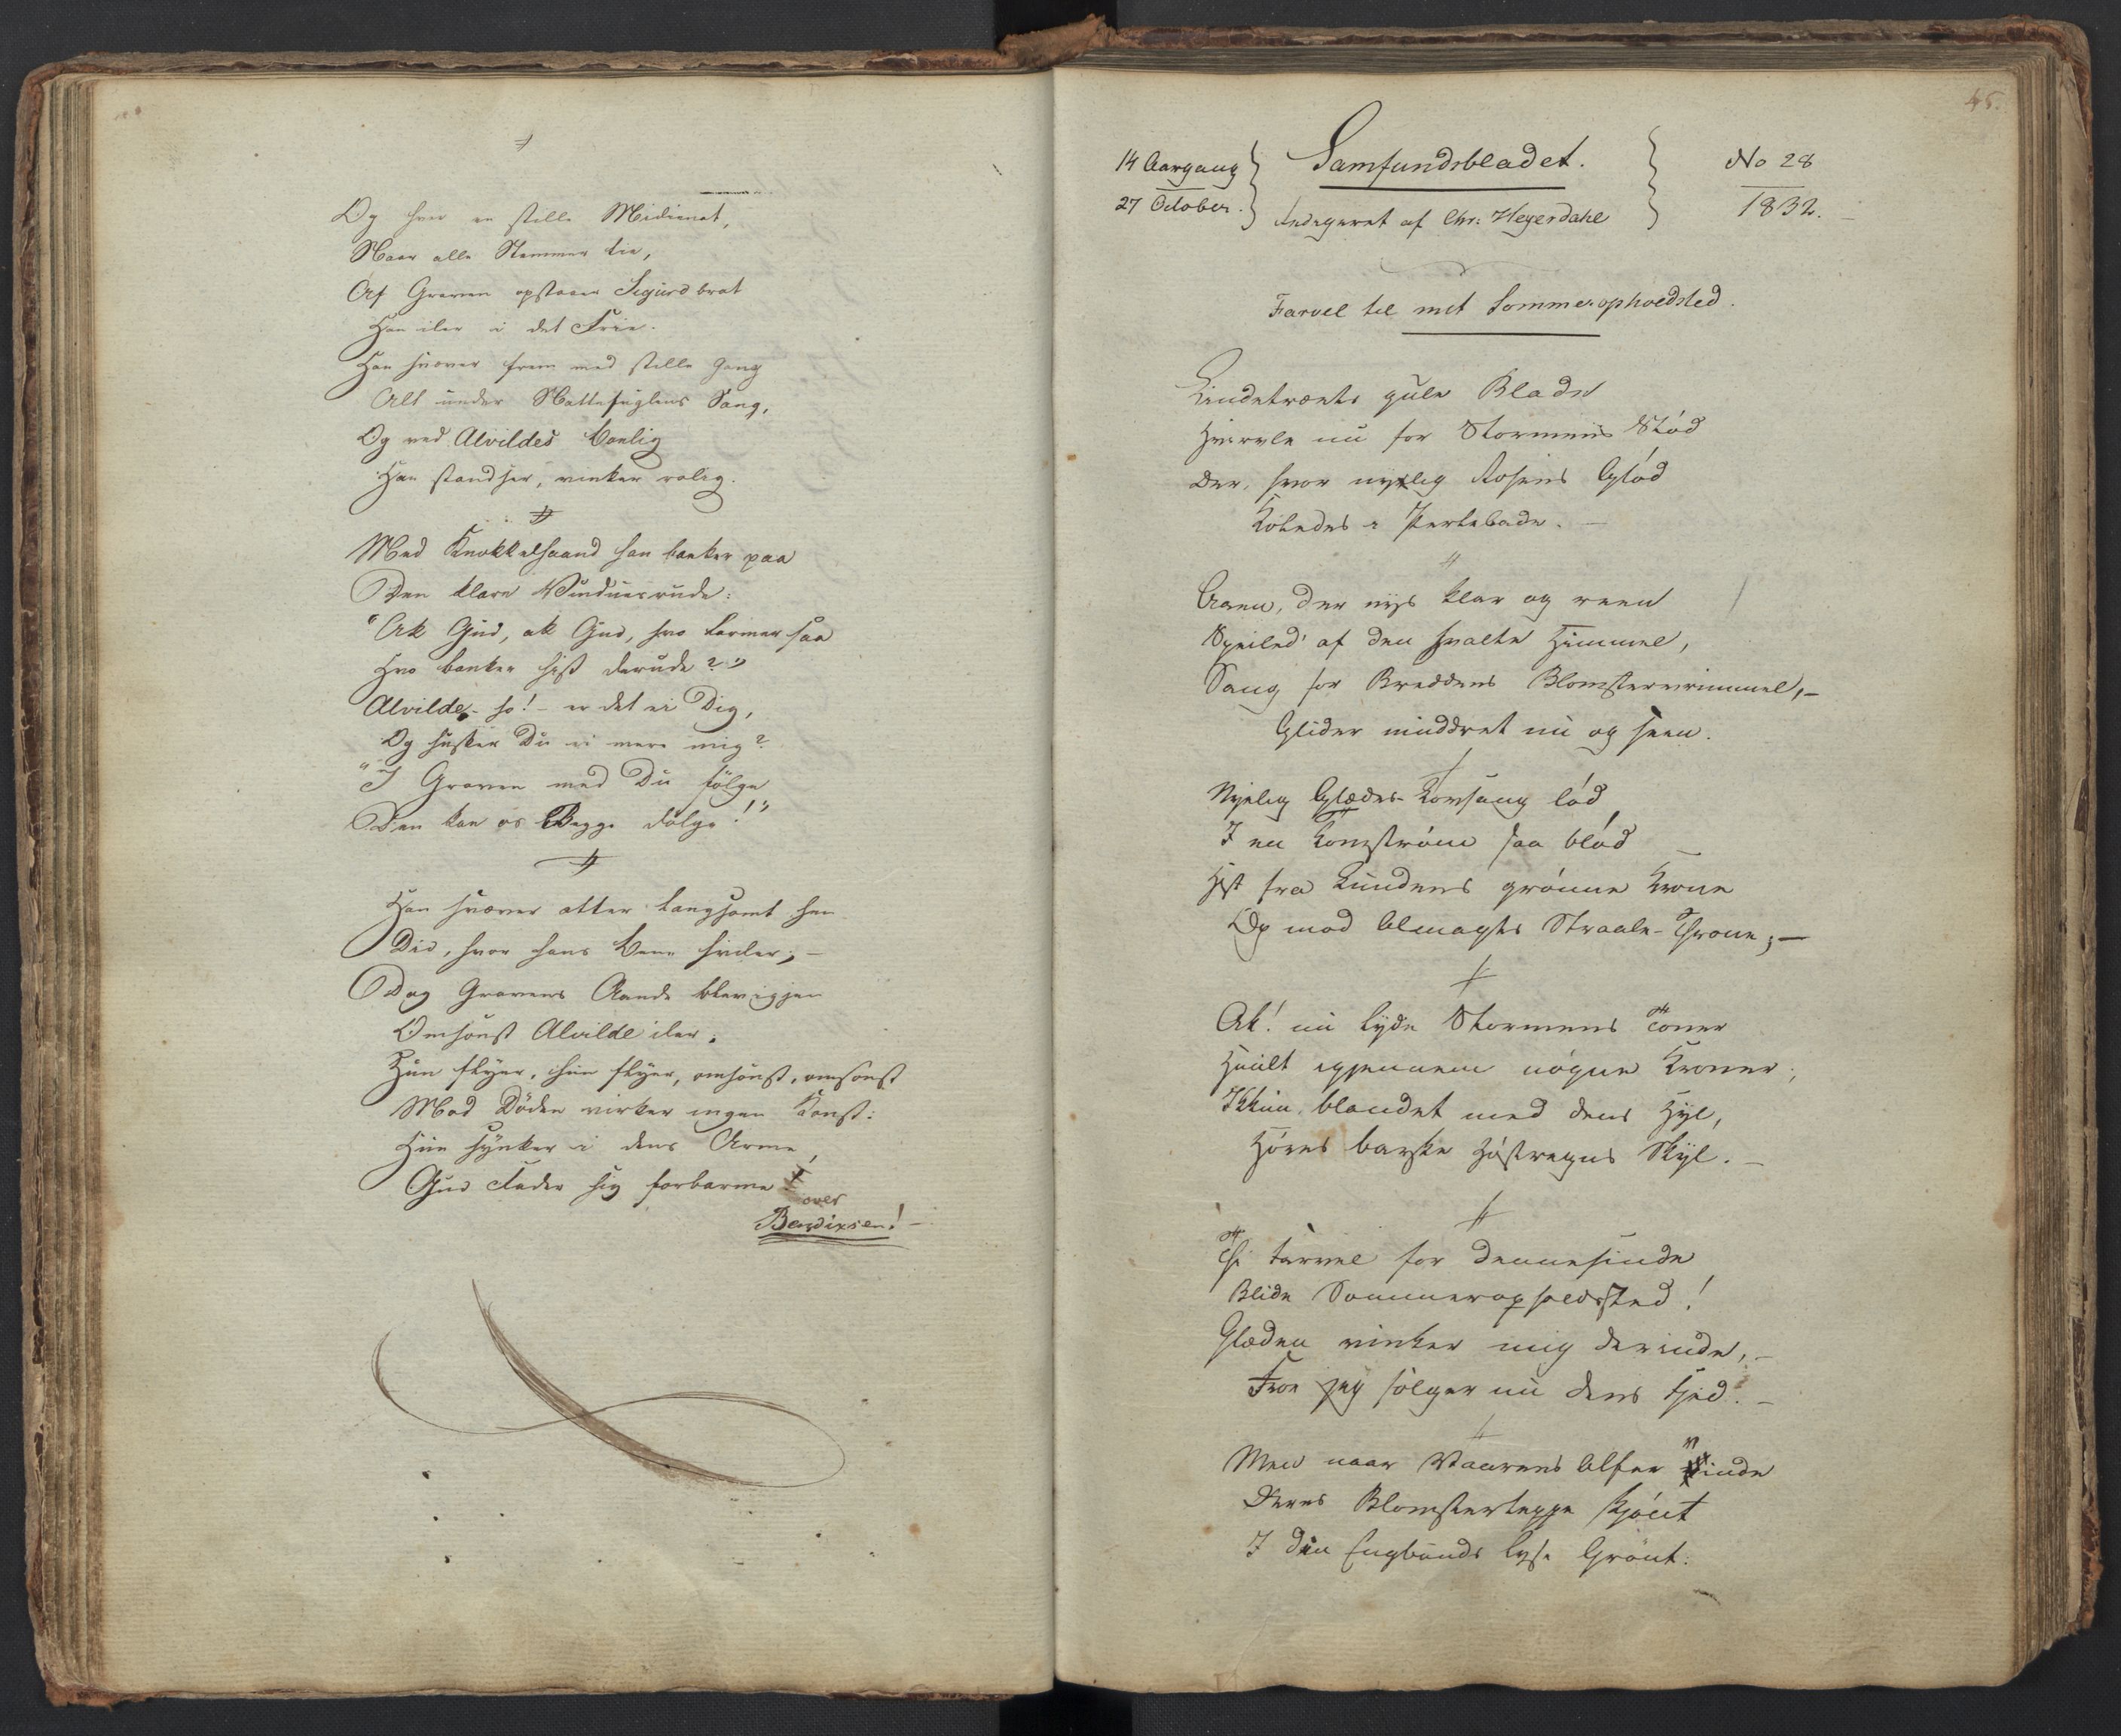 Og hver en stille Midienat,
Naar alle Stemmer tie,
Af Graven opstaaer Sigurd brat
Han iler i det Frie.
Han svæver frem med stille Gang
Alt under Nattefuglens Sang,
Og ved Alvildes Bolig
Han standser, vinker rolig.
Med Knokkelhaand han banker paa
Den klare Vinduesrude:
"Ak Gud, ak Gud, hvo larmer saa
Hvo banker hist derude?"
Alvilde - ho! - er det ei Dig,
Og husker Du ei mere mig?
"I Graven med Du følge
Den kan os Begge dølge!"
Han svæver atter langsomt hen
Did, hvor hans Bene hviler; -
Dog Gravens Aande blev igjen
Omsonst Alvilde iler.
Hun flyer, hun flyer, omsonst, omsonst
Mod Døden virker ingen Konst:
Hun synker i dens Arme,
Gud Fader sig forbarme
over
Bendixsen! -
45.
14 Aargang
27 October.
Samfundsbladet.
Redigeret af Chr: Heyerdahl
No 28
1832.
Farvel til mit Sommeropholdsted.
Lindetræets gule Blade
Hvirvle nu for Stormens Stød
Der, hvor nyelig Rosens Glød
Køledes i Perlebade. -
Aaen, der nys klar og reen
Speiled' af den hvalte Himmel,
Sang for Breddens Blomstervrimmel, -
Glider muddret nu og seen.
Nyelig Glædes-Korsang lød
I en Tonestrøm saa blød
Hist fra Lundens grønne Krone
Op mod Almagts Straale-Throne; -
Ak! nu lyde Stormens Toner
Huult igjennem nøgne Kroner;
Ikkun blandet med dens Hyl,
Høres barske Høstregns Skyl. -
Thi Farvel for dennesinde
Blide Sommeropholdssted!
Glæden vinker mig derinde, -
Troe jeg følger nu dens Fjed. -
Men naar Vaarens Alfer vinde
Deres Blomsterteppe skjønt
I din Engbunds lyse Grønt: